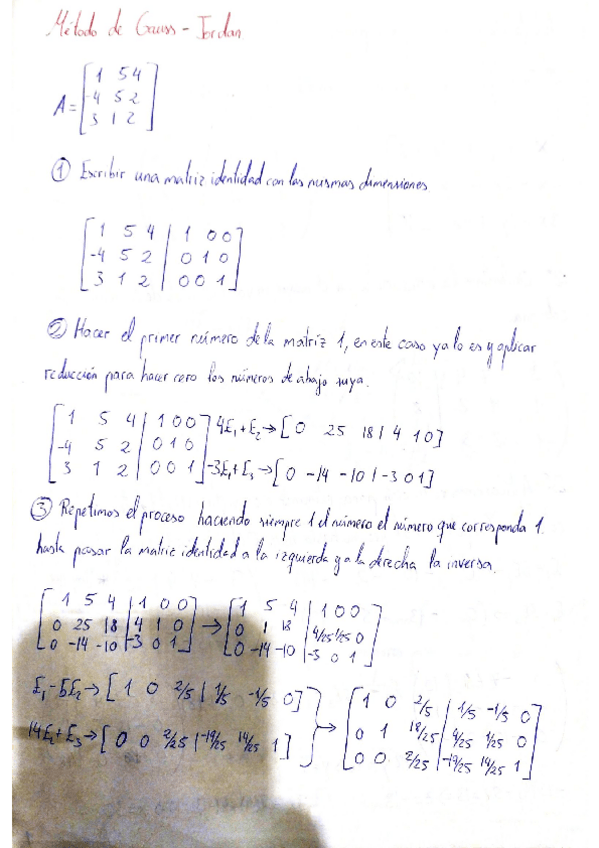 Método de Gauss - Jordan
A = [ 1 5 4
-4 5 2
3 1 2 ]
① Escribir una matriz identidad con las mismas dimensiones
[ 1 5 4 | 1 0 0
-4 5 2 | 0 1 0
3 1 2 | 0 0 1 ]
② Hacer el primer número de la matriz 1, en este caso ya lo es y aplicar
reducción para hacer cero los números de abajo suya.
[ 1 5 4 | 1 0 0 4E₁+E₂→[ 0 25 18 | 4 1 0 ]
-4 5 2 | 0 1 0
3 1 2 | 0 0 1 ] -3E₁+E₃→[ 0 -14 -10 | -3 0 1 ]
③ Repetimos el proceso haciendo siempre 1 el número el número que corresponda 1.
hasta pasar la matriz identidad a la izquierda y a la derecha la inversa.
[ 1 5 4 | 1 0 0 → [ 1 5 4 | 1 0 0
0 25 18 | 4 1 0 0 1 18 | 4/25 1/25 0
0 -14 -10 | -3 0 1 ] 0 -14 -10 | -3 0 1 ]
E₁-5E₂→[ 1 0 2/5 | 1/5 -1/5 0 ]
14E₂+E₃→[ 0 0 2/25 | -19/25 14/25 1 ]
→ [ 1 0 2/5 | 1/5 -1/5 0
0 1 18/25 | 4/25 1/25 0
0 0 2/25 | -19/25 14/25 1 ]